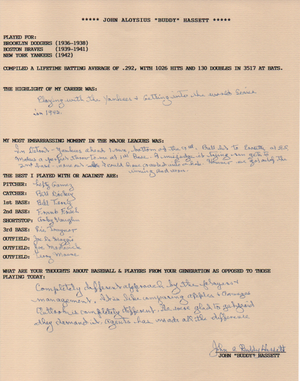 ***** JOHN ALOYSIUS "BUDDY" HASSETT *****
PLAYED FOR:
BROOKLYN DODGERS (1936-1938)
BOSTON BRAVES (1939-1941)
NEW YORK YANKEES (1942)
COMPILED A LIFETIME BATTING AVERAGE OF .292, WITH 1026 HITS AND 130 DOUBLES IN 3517 AT BATS.
THE HIGHLIGHT OF MY CAREER WAS:
Playing with the Yankees & getting into the world series
in 1942.
MY MOST EMBARRASSING MOMENT IN THE MAJOR LEAGUES WAS:
THE BEST I PLAYED WITH OR AGAINST ARE:
PITCHER: Lefty Gomez
CATCHER: Bill Dickey
1st BASE: Bill Terry
2nd BASE:
SHORTSTOP: Arky Vaughn
3rd BASE: Pie Traynor
OUTFIELD: Joe Di Maggio
OUTFIELD: Joe Medwick
OUTFIELD: Terry Moore
WHAT ARE YOUR THOUGHTS ABOUT BASEBALL & PLAYERS FROM YOUR GENERATION AS OPPOSED TO THOSE PLAYING TODAY:
Completely different approach by the players &
management. It is like comparing apples & oranges
completely different. We were glad to
they demand it. Agents has made all the difference
John A "Buddy" Hassett
JOHN "BUDDY" HASSETT